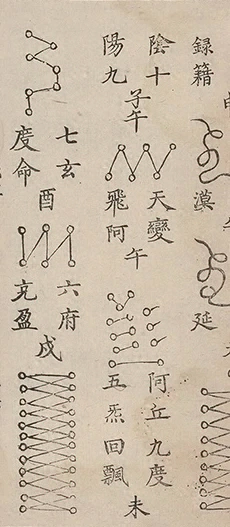 録籍
漠
延
陰十
陽九
子午
天變
飛阿
午
阿丘九度
五炁回飄
未
七玄
度命
酉
六府
充盈
戌